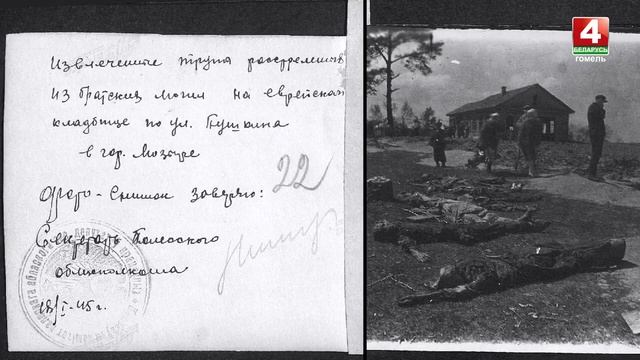 Извлечение трупа расстрелян
из братских могил на еврейском
кладбище по ул. Пушкина
в гор. Мозыре
22
Фото-снимок заверяю:
Секретарь Полесского
облисполкома
18/I-45 г.
4
БЕЛАРУСЬ
ГОМЕЛЬ